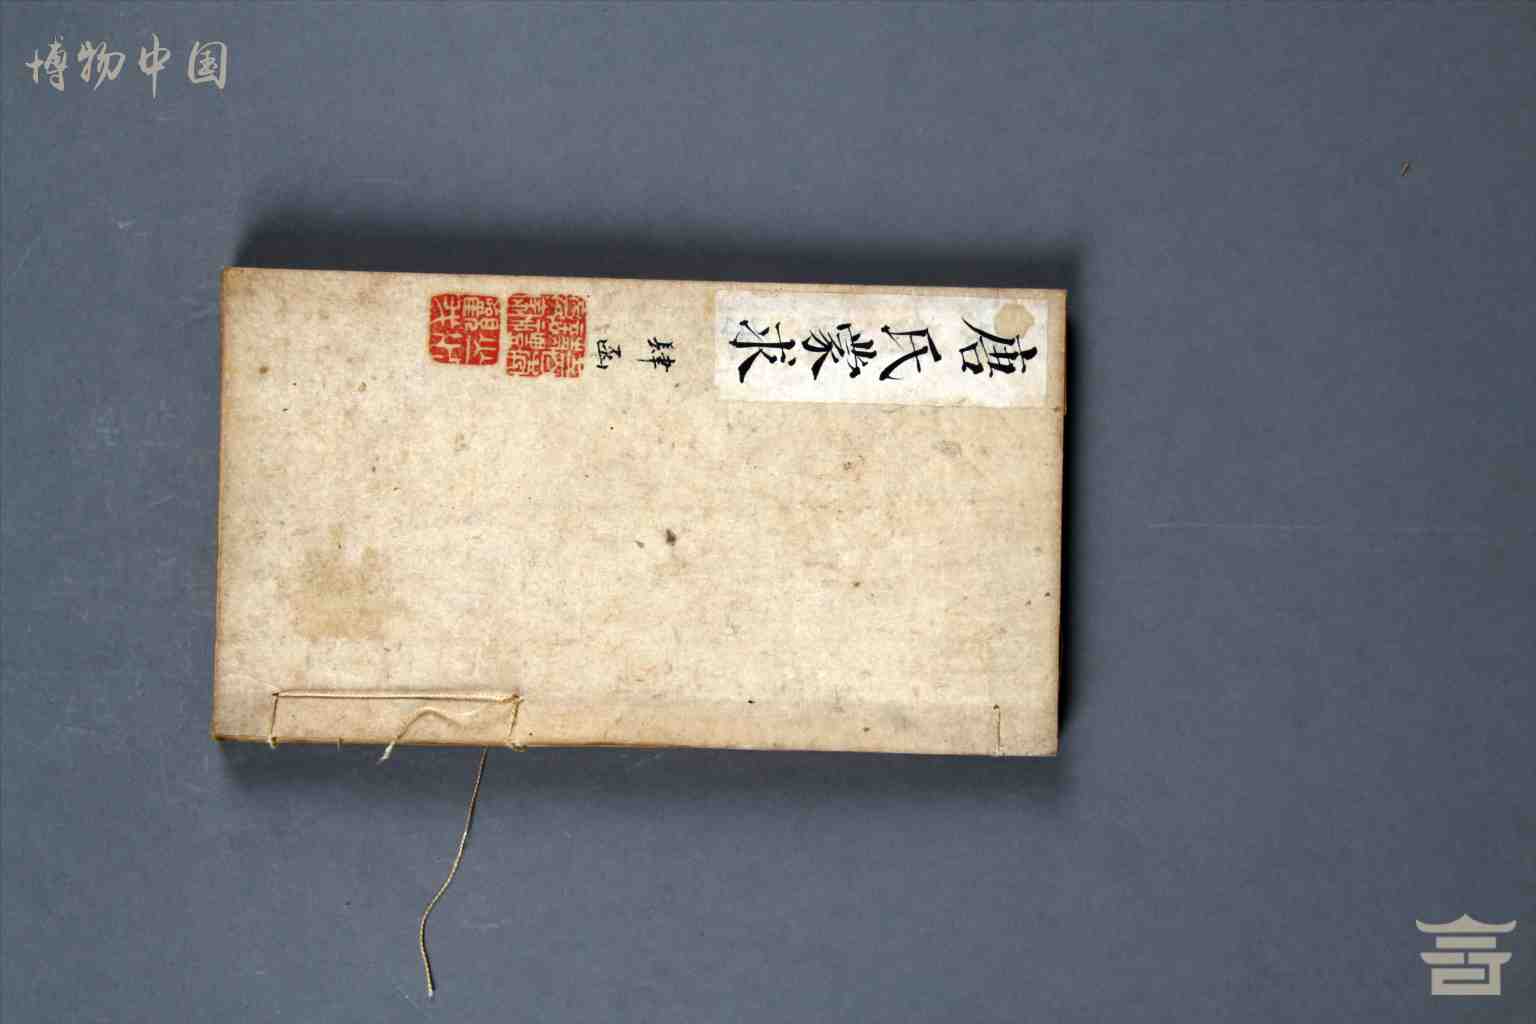 博物中国
唐氏蒙求
肆函